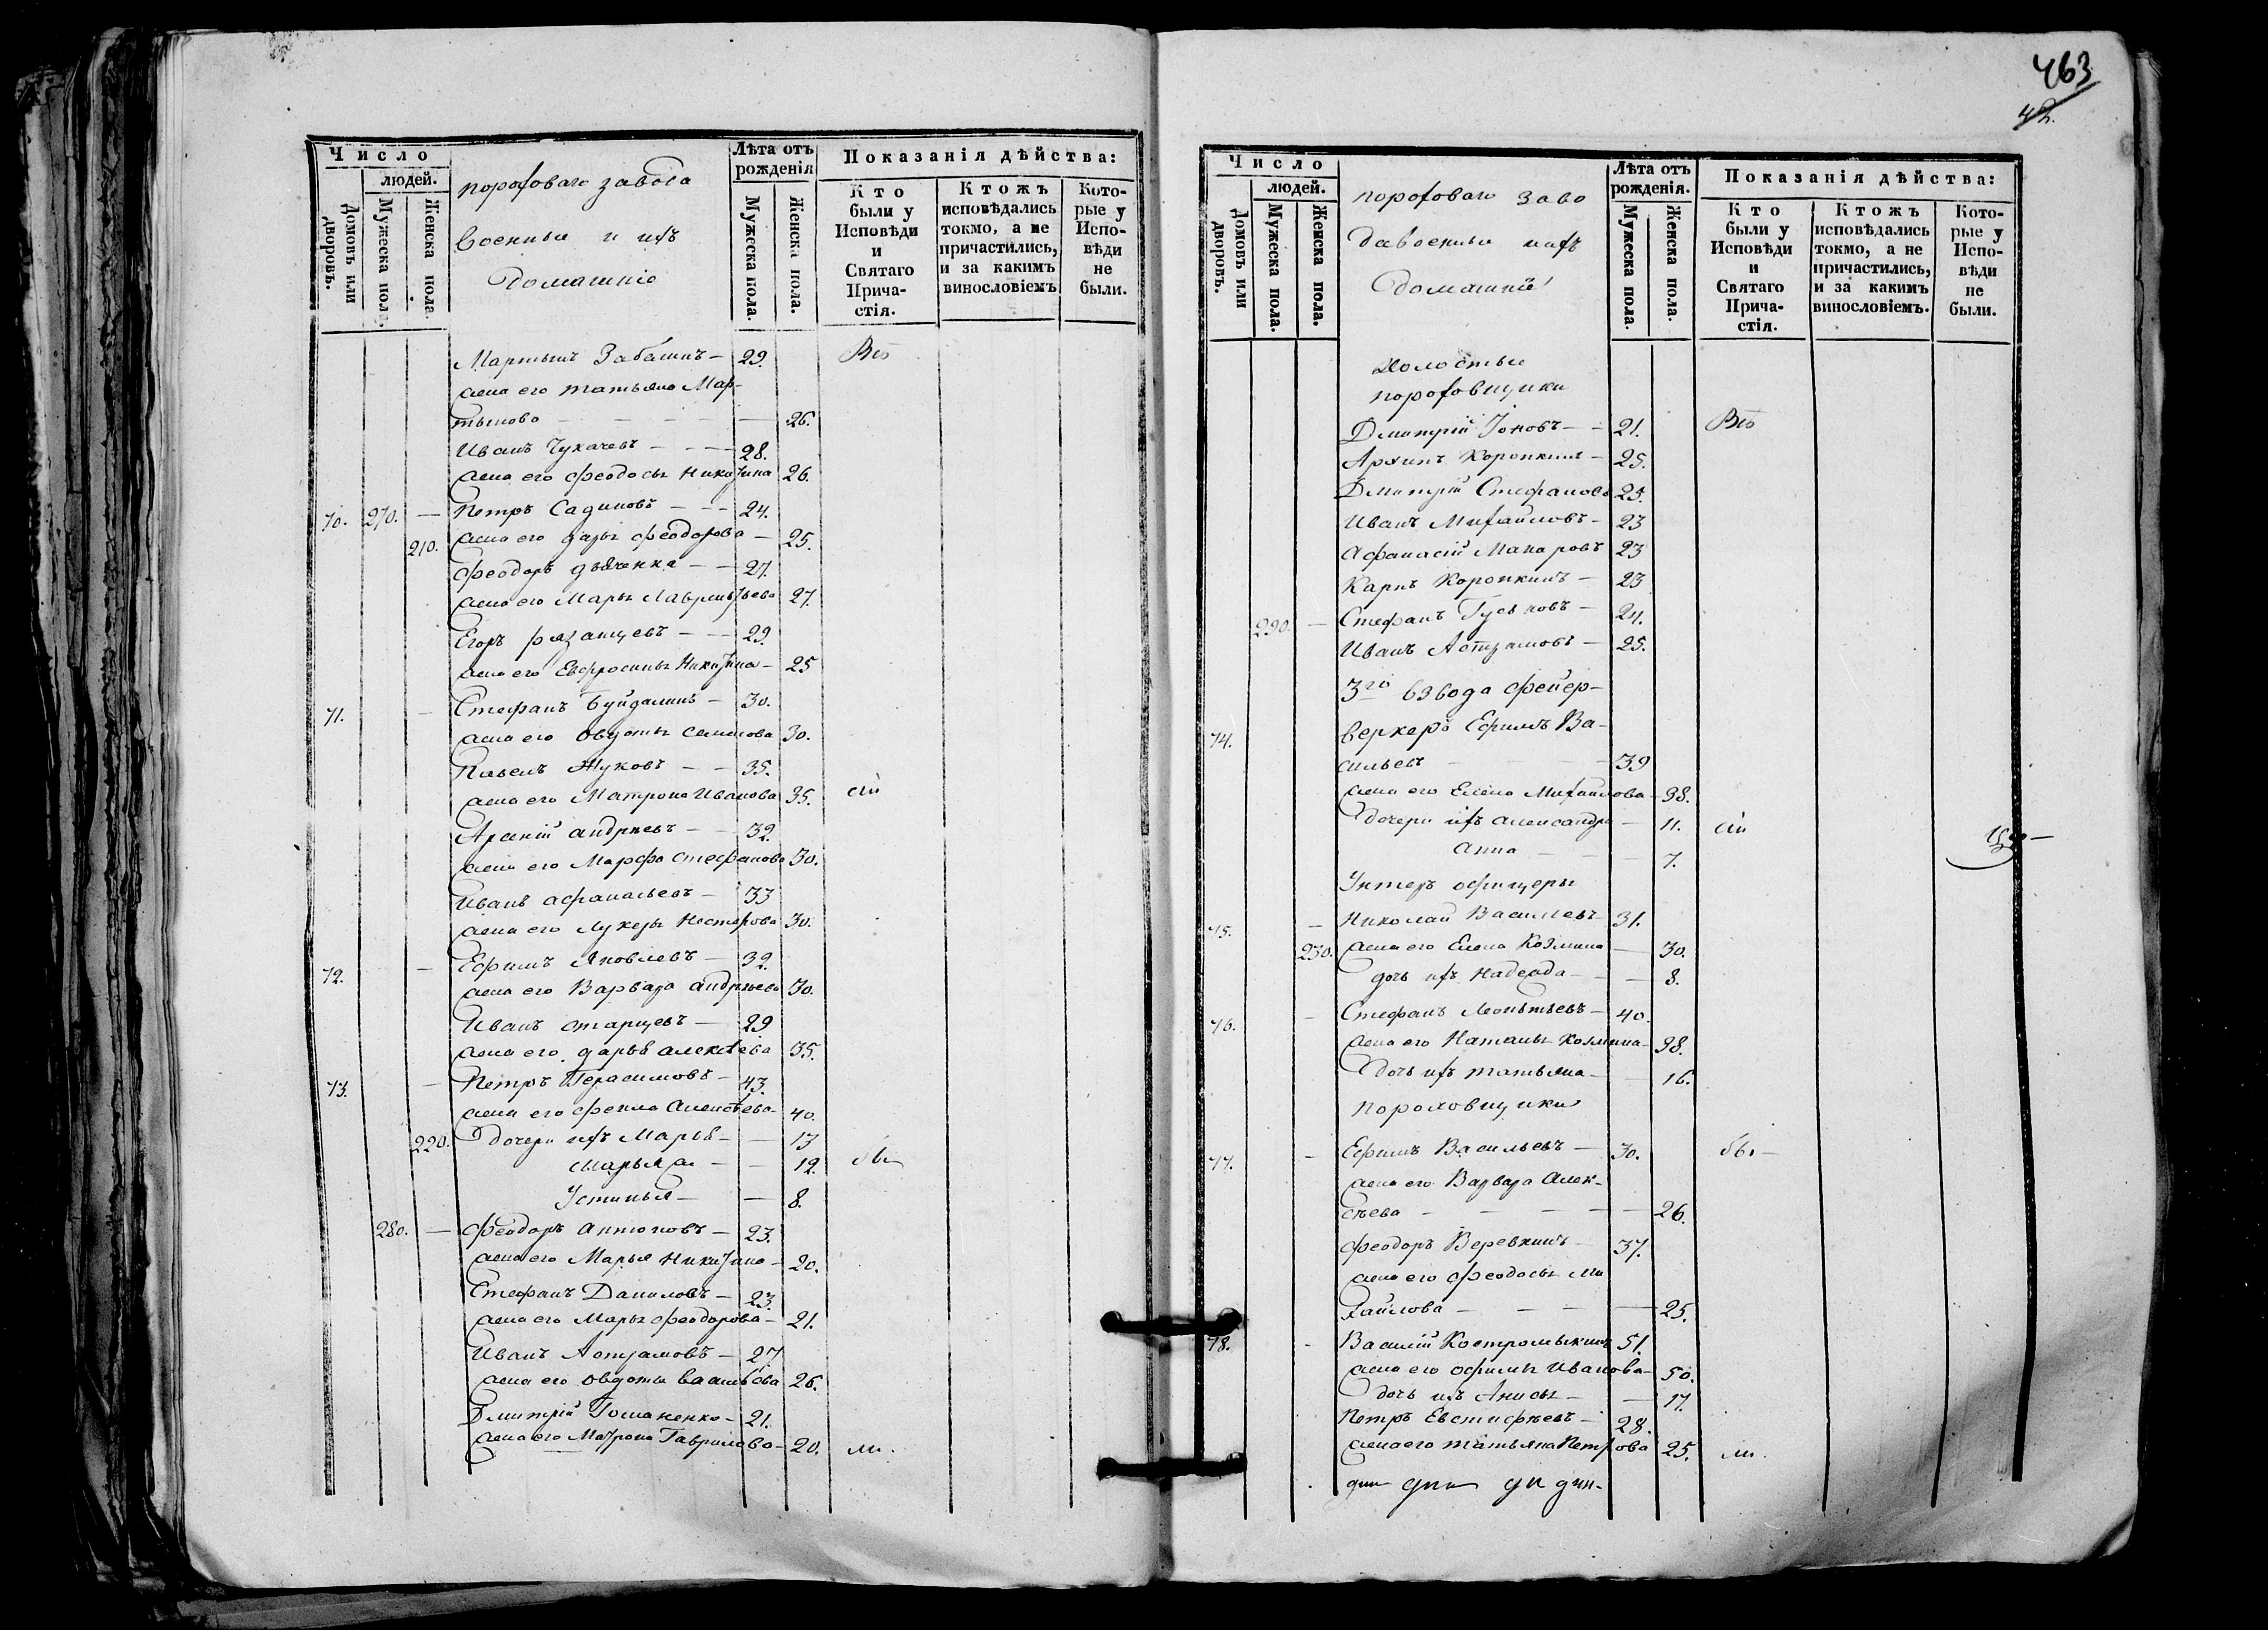 463
42.
Число
людей.
Домовъ или дворовъ.
Мужеска пола.
Женска пола.
пороховаго завода
военныя и ихъ
домашніе
Лѣта отъ рожденія
Мужеска пола.
Женска пола.
Показанія дѣйства:
Кто были у Исповѣди и Святаго Причастія.
Ктожъ исповѣдались токмо, а не причастились, и за какимъ винословіемъ
Которые у Исповѣди не были.
Мартынъ Забашнъ — 29. Всѣ
жена его татьяна Мар-
тынова — — — 26.
Иванъ Чукачевъ — — 28.
жена его феодосья Никитина 26.
70. 270. — Петръ Садиковъ — — 24.
210. жена его дарья феодорова — 25.
феодоръ дьяченка — — 27.
жена его Марья Лаврентьева 27.
Егоръ рязанцевъ — — 29.
жена его Евфросинья Никитина — 25
71. — Стефанъ Буйдалинъ — 30.
жена его овдотья семенова 30.
Павелъ Жуковъ — — 35.
жена его Матрона Иванова 35. сіи
Арсеній андреевъ — — 32.
жена его Марфа стефанова 30.
Иванъ афанасьевъ — 33
жена его Лукерья Нестерова 30.
72. — Ефимъ Яковлевъ — 32.
жена его Варвара андреева 30.
Иванъ старцевъ — 29
жена его дарья алексѣева 35.
73. — Петръ Герасимовъ — 43.
жена его фекла Алексѣева — 40.
220. дочери ихъ Марья — — 13
Марья же — — 12. бы
Устинья — — 8.
280. — феодоръ антоновъ — 23.
жена его Марья Никитина — 20.
Стефанъ Даниловъ — 23.
жена его Марья феодорова — 21.
Иванъ Астрамовъ — 27
жена его овдотья васильева 26.
Дмитрій Гошаненко — 21.
жена его Матрона Гаврилова — 20. ли.
Число
людей.
Домовъ или дворовъ.
Мужеска пола.
Женска пола.
пороховаго заво
да военныя и ихъ
домашніе
Лѣта отъ рожденія.
Мужеска пола.
Женска пола.
Показанія дѣйства:
Кто были у Исповѣди и Святаго Причастія.
Ктожъ исповѣдались токмо, а не причастились, и за какимъ винословіемъ.
Которые у Исповѣди не были.
Холостые
пороховщики
Дмитрій Іоновъ — — 21. Всѣ
Архипъ Коропкинъ — 25.
Дмитрій Стефановъ 25.
Иванъ Михайловъ — 23
Афанасій Макаровъ 23
Карпъ Коропкинъ — 23
290. — Стефанъ Гуськовъ — 24.
Иванъ Астрамовъ — 25.
3го взвода фейер-
74. веркеръ Ефимъ Ва-
сильевъ — — 39
жена его Елена Михайлова — 38.
дочери ихъ александра — 11. сіи
анна — — 7.
Унтеръ офицеры
75. — Николай Васильевъ — 31.
230. жена его Елена Козмина — 30.
дочь ихъ Надежда — — 8.
76. — Стефанъ Леонтьевъ — 40.
жена его Наталья Козмина — 38.
дочь ихъ татьяна — — 16.
пороховщики
77. — Ефимъ Васильевъ — 30. бы —
жена его Варвара Алек-
сѣева — — — — 26.
феодоръ Веревкинъ — 37.
жена его феодосья Ми
хайлова — — — 25.
78. - Василій Костромыкинъ 51.
жена его офимья Иванова — 50.
дочь ихъ Анисья — — 17.
Петръ Евстифѣевъ — 28.
жена его татьяна Петрова 25. ли.